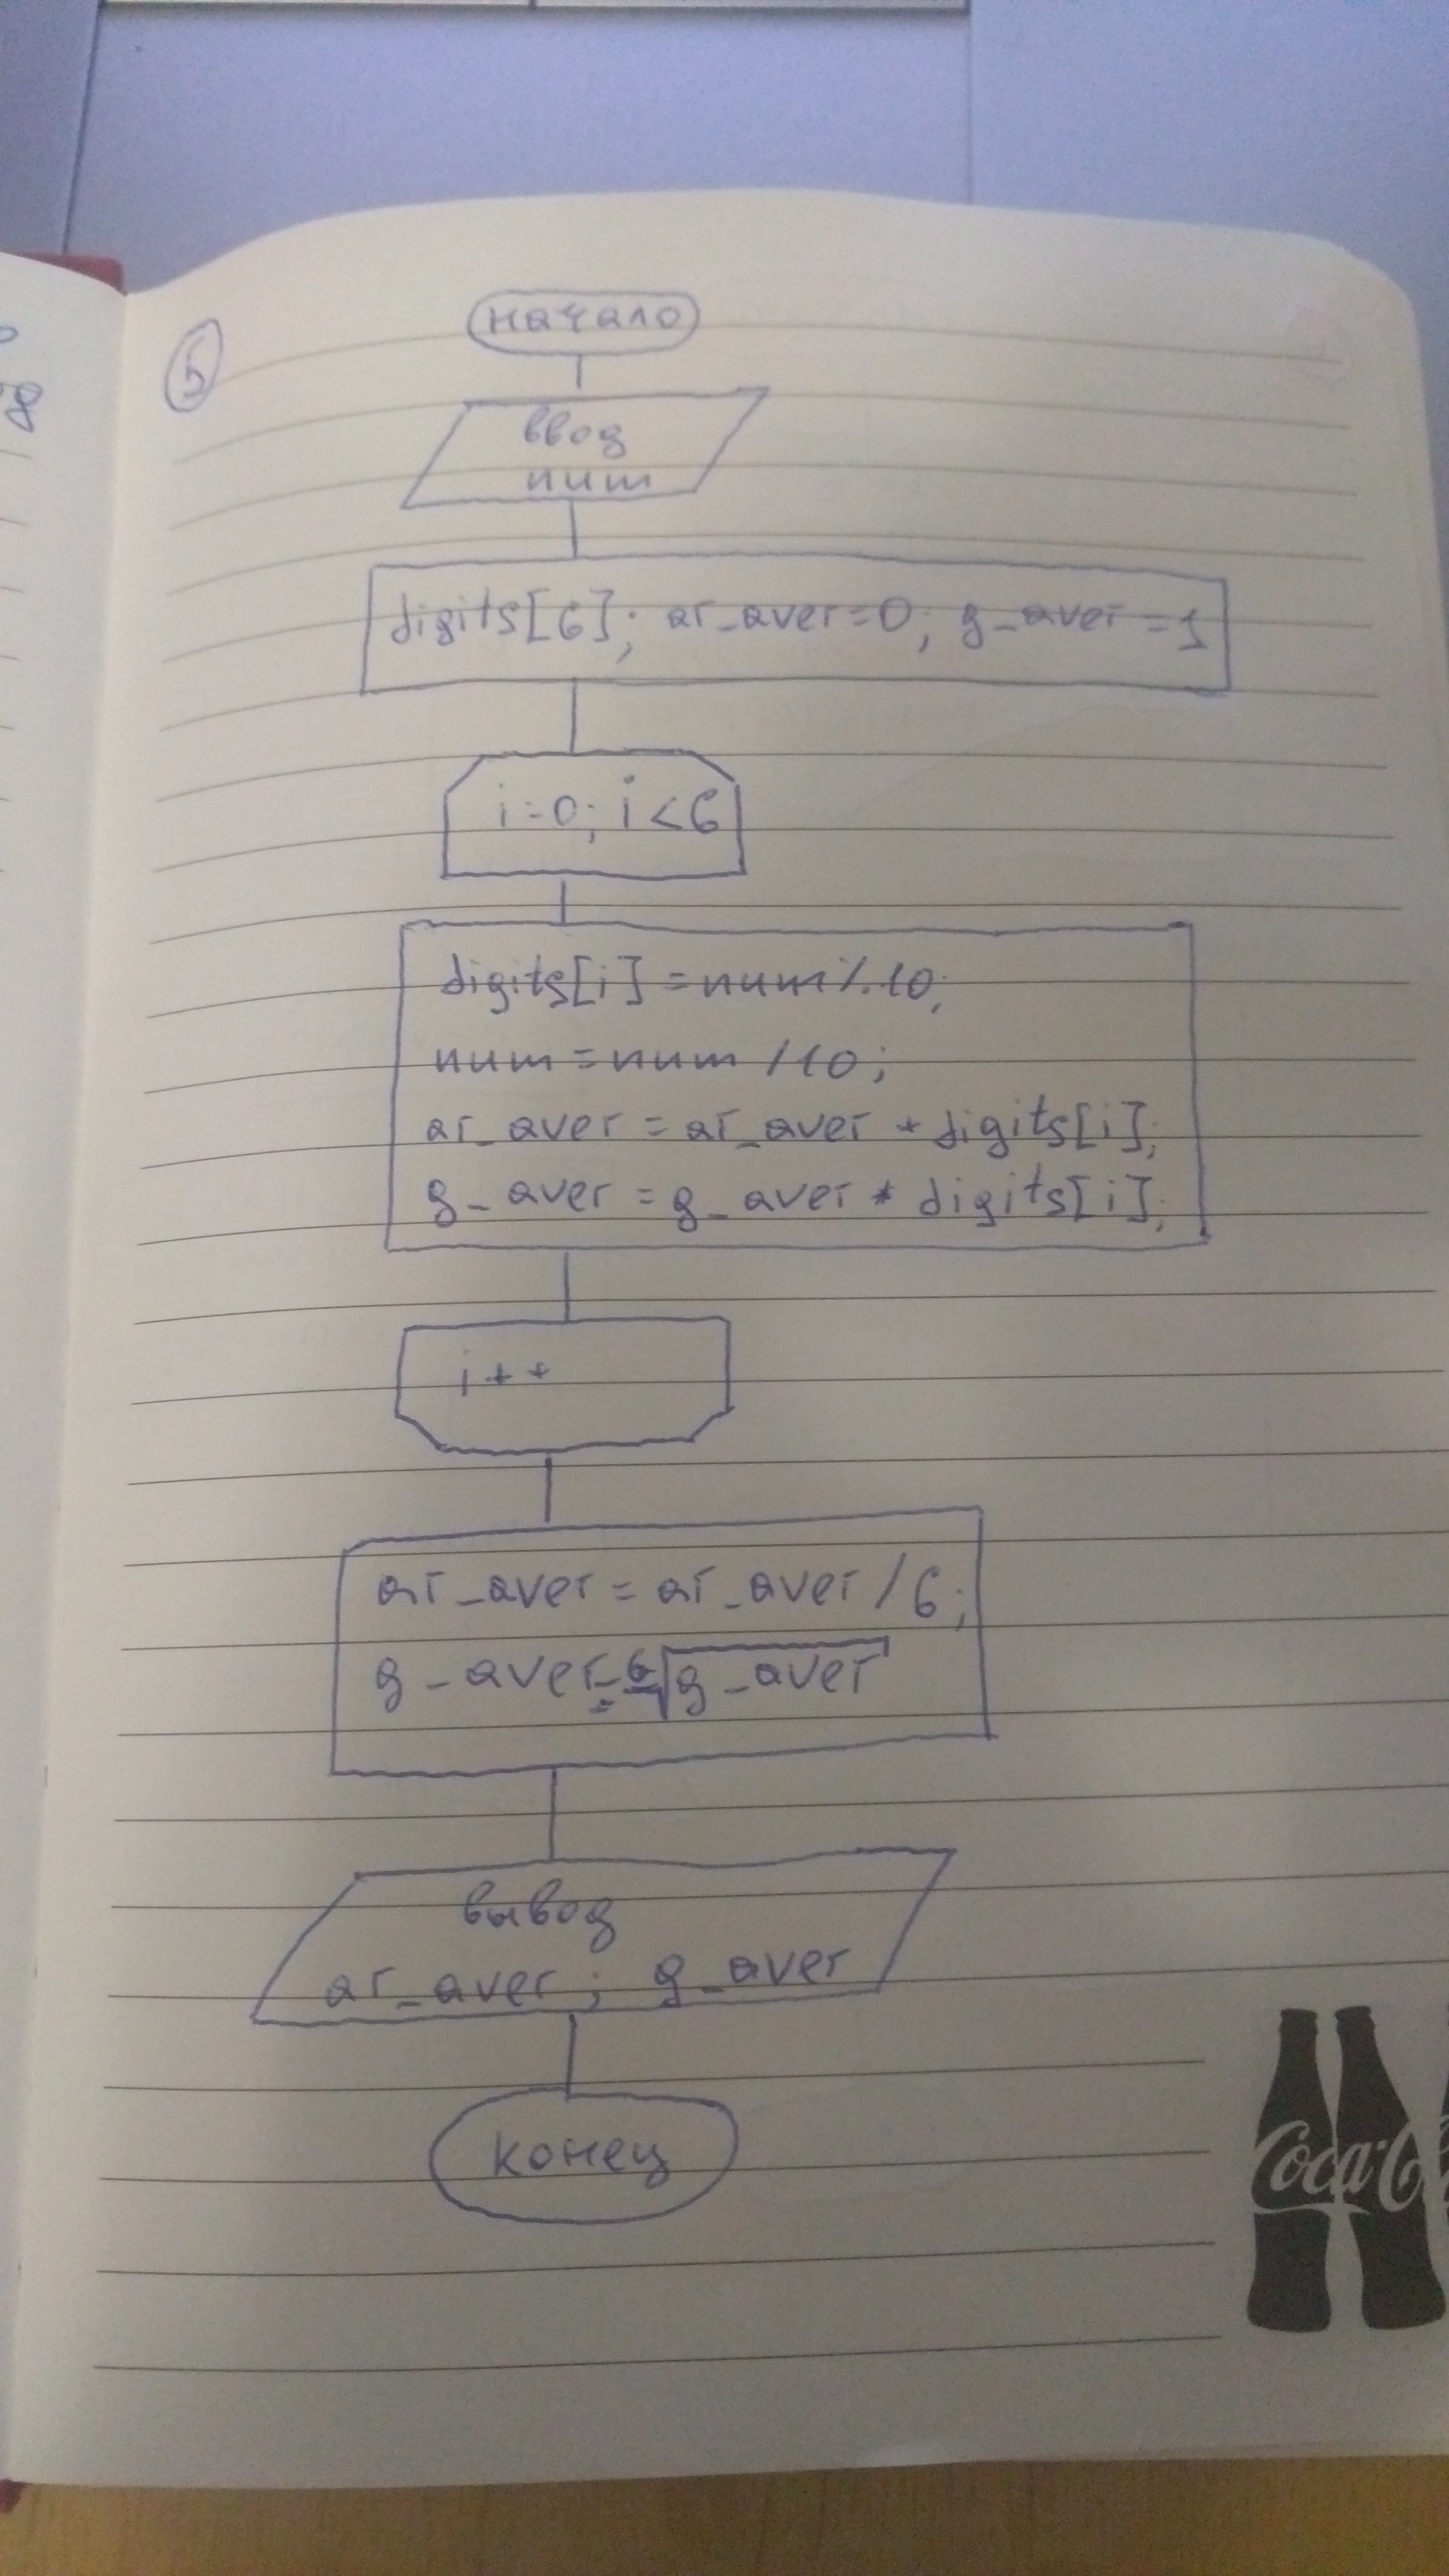 5
начало
ввод
num
digits[6]; ar_aver=0; g_aver=1
i=0; i<6
digits[i]=num%10;
num=num/10;
ar_aver=ar_aver+digits[i];
g_aver=g_aver*digits[i];
i++
ar_aver=ar_aver/6;
g_aver=⁶√g_aver
вывод
ar_aver; g_aver
конец